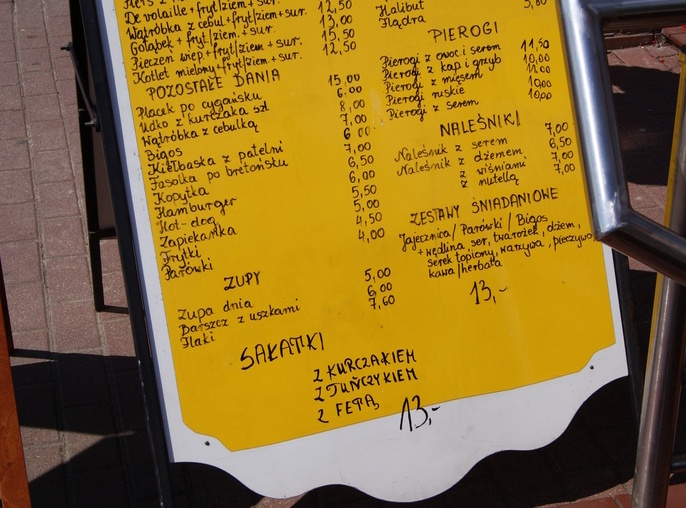 De volaille + fryt/ziem + sur. 12,50
Wątróbka z cebul + fryt/ziem + sur. 13,00
Gołąbek + fryt/ziem. + sur. 15,50
Pieczeń wiep + fryt/ziem + sur. 12,50
Kotlet mielony + fryt/ziem + sur.
POZOSTAŁE DANIA
Placek po cygańsku 15,00
Udko z kurczaka szt 6,00
Wątróbka z cebulką 8,00
Bigos 7,00
Kiełbaska z patelni 6,00
Fasolka po bretońsku 7,00
Kopytka 6,50
Hamburger 6,00
Hot-dog 5,50
Zapiekanka 5,00
Frytki 4,50
Parówki 4,00
ZUPY
Zupa dnia 5,00
Barszcz z uszkami 6,00
Flaki 7,60
SAŁATKI
Z KURCZAKIEM
Z TUŃCZYKIEM
Z FETĄ 13,-
Halibut 5,80
Flądra
PIEROGI
Pierogi z owoc i serem 11,50
Pierogi z kap i grzyb 10,00
Pierogi z mięsem 11,00
Pierogi ruskie 10,00
Pierogi z serem 10,00
NALEŚNIKI
Naleśnik z serem 7,00
Naleśnik z dżemem 6,50
z wiśniami 7,00
z nutellą 7,00
ZESTAWY ŚNIADANIOWE
Jajecznica/Parówki/Bigos
+ wędlina, ser, twarożek, dżem,
serek topiony, warzywa, pieczywo
kawa/herbata
13,-